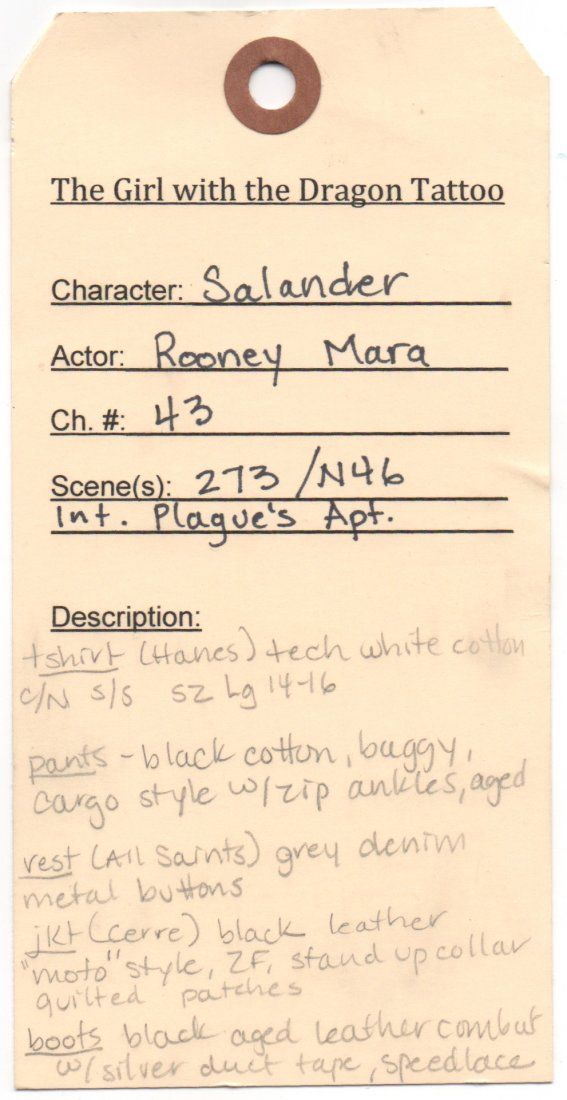 The Girl with the Dragon Tattoo
Character: Salander
Actor: Rooney Mara
Ch. #: 43
Scene(s): 273 /N46
Int. Plague's Apt.
Description:
tshirt (Hanes) tech white cotton
c/N s/s sz Lg 14-16
pants - black cotton, baggy,
cargo style w/zip ankles, aged
vest (All Saints) grey denim
metal buttons
jkt (Cerre) black leather
"moto" style, ZF, stand up collar
quilted patches
boots black aged leather combat
w/silver duct tape, speedlace